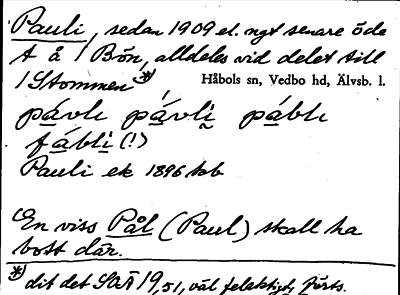 Pauli, sedan 1909 el. ngt senare öde
t å 1 Bön, alldeles vid delet till
1 Stommen *)
Håbols sn, Vedbo hd, Älvsb. l.
pávlı pávli páblı
fábli (!)
Pauli ek 1896 kob
En viss Pål (Paul) skall ha
bott där.
*) dit det SOÄ 19,51, väl felaktigt, förts.